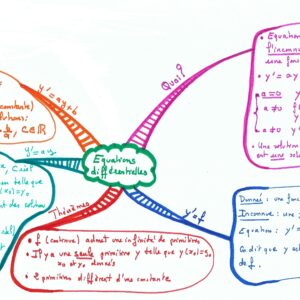 Equations
différentielles
Quoi?
• Equation
l'inconnue
une fonc
a=0
a≠0
a≠0
• Une solution
est une solu
y'=ay+b
constante)
lutions:
C∈ℝ
y'=ay
, C∈ℝ
on telle que
y(x₀)=y₀
ont des solution
Théorèmes
• f (continue) admet une infinité de primitives
• Il y a une seule primitive y telle que y(x₀)=y₀
x₀ et y₀ donnés
• 2 primitives diffèrent d'une constante
y'=f
Donnée: une fonc
Inconnue: une
Equation: y'=
On dit que y est
de f.